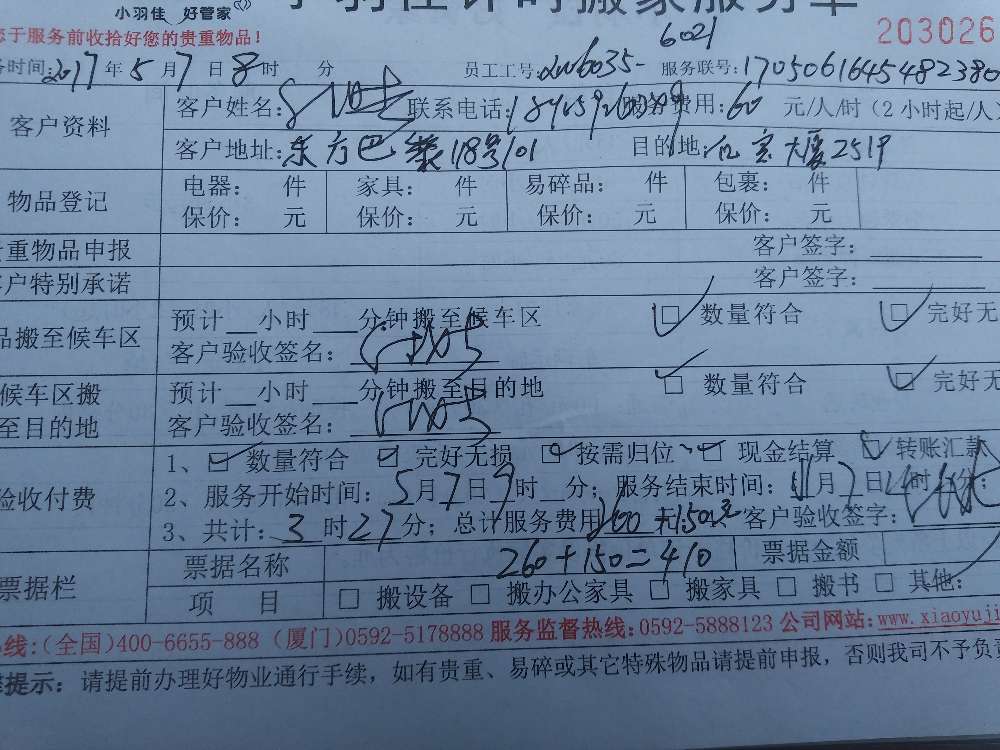 小羽佳 好管家
小羽佳计时搬家服务单
于服务前收拾好您的贵重物品！
203026
6021
务时间：2017年5月7日8时 分 员工工号：6035 服务联号：1705061645482380
客户资料 客户姓名： 联系电话： 费用：60 元/人/时（2小时起/人
客户地址：东方巴黎118号101 目的地：宏大厦2519
物品登记 电器： 件 家具： 件 易碎品： 件 包裹： 件
保价： 元 保价： 元 保价： 元 保价： 元
重物品申报 客户签字：
户特别承诺 客户签字：
品搬至候车区 预计__小时___分钟搬至候车区 □ 数量符合 □ 完好无
客户验收签名：
候车区搬至目的地 预计__小时___分钟搬至目的地 □ 数量符合 □ 完好无
客户验收签名：
验收付费 1、□ 数量符合 □ 完好无损 □ 按需归位、□ 现金结算 □ 转账汇款
2、服务开始时间：5月7日9时__分；服务结束时间： 月7日 时 分；
3、共计：3时27分；总计服务费用 元 150元 客户验收签字：
票据栏 票据名称 260+150=410 票据金额
项 目 □ 搬设备 □ 搬办公家具 □ 搬家具 □ 搬书 □ 其他：
线：(全国)400-6655-888 (厦门)0592-5178888 服务监督热线：0592-5888123 公司网站：www.xiaoyuji
提示：请提前办理好物业通行手续，如有贵重、易碎或其它特殊物品请提前申报，否则我司不予负责